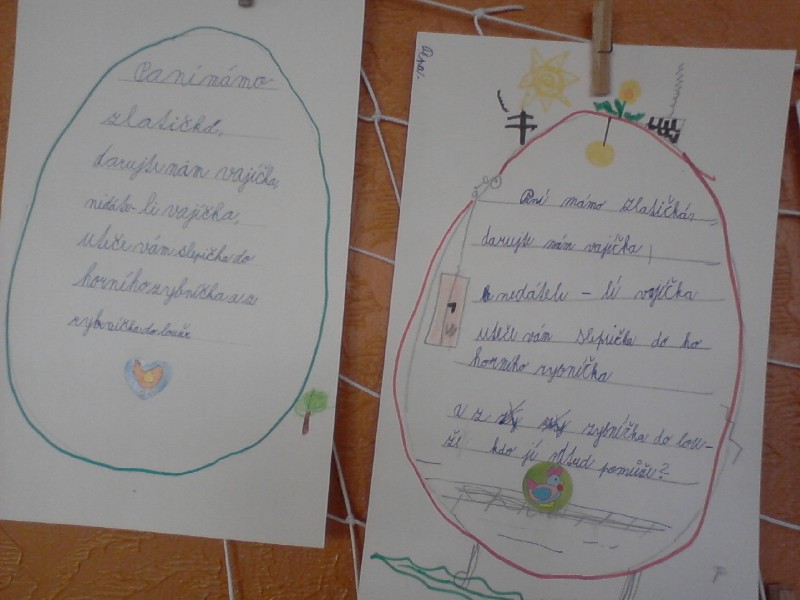 Paní námo
zlatičká,
darujte nám vajíčka,
nedáte-li vajíčka,
uteče vám slepička do
horního rybníčka a z
rybníčka do louže
Paní mámo zlatičká,
darujte nám vajíčka,
nedátele - li vajíčka
uteče vám slepička do ho
horního rybníčka
a z rybníčka do lou-
že kdo jí odtud pomůže?